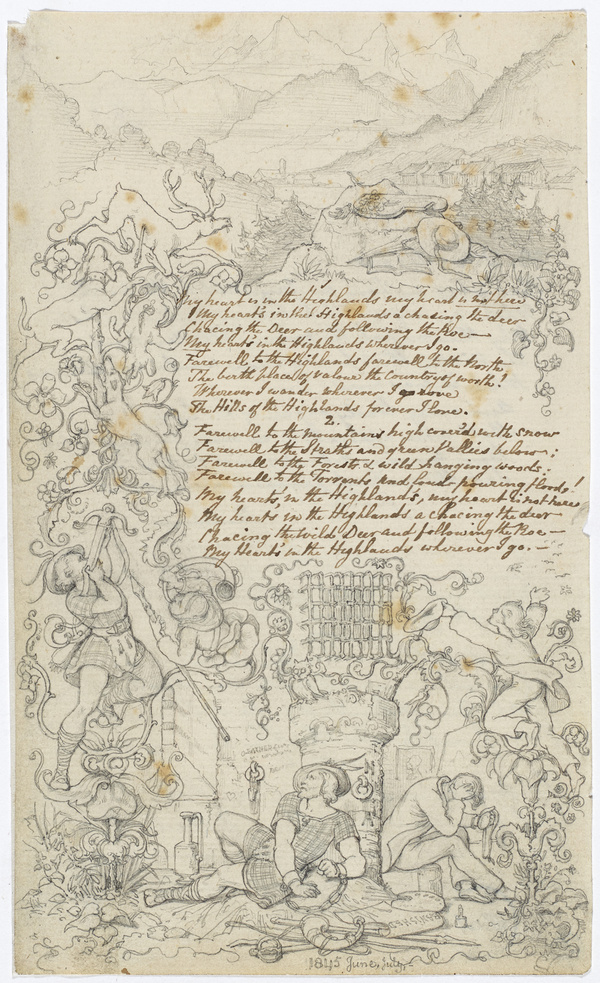 My heart is in the Highlands my heart is not here
My heart's in the Highlands a chasing the deer
Chacing the Deer and following the Roe —
My heart's in the Highlands wherever I go.
Farewell to the Highlands farewell to the North
The birth place of valour the Country of worth!
Wherever I wander wherever I rove
The Hills of the Highlands for ever I love.
2.
Farewell to the mountains high cover'd with snow
Farewell to the Straths and green Vallies below;
Farewell to the Forests & wild hanging woods;
Farewell to the Torrents and loud pouring floods!
My heart's in the Highlands, my heart is not here
My heart's in the Highlands a chacing the deer
Chacing the Wild Deer and following the Roe —
My Heart's in the Highlands wherever I go. —
1845, June, July